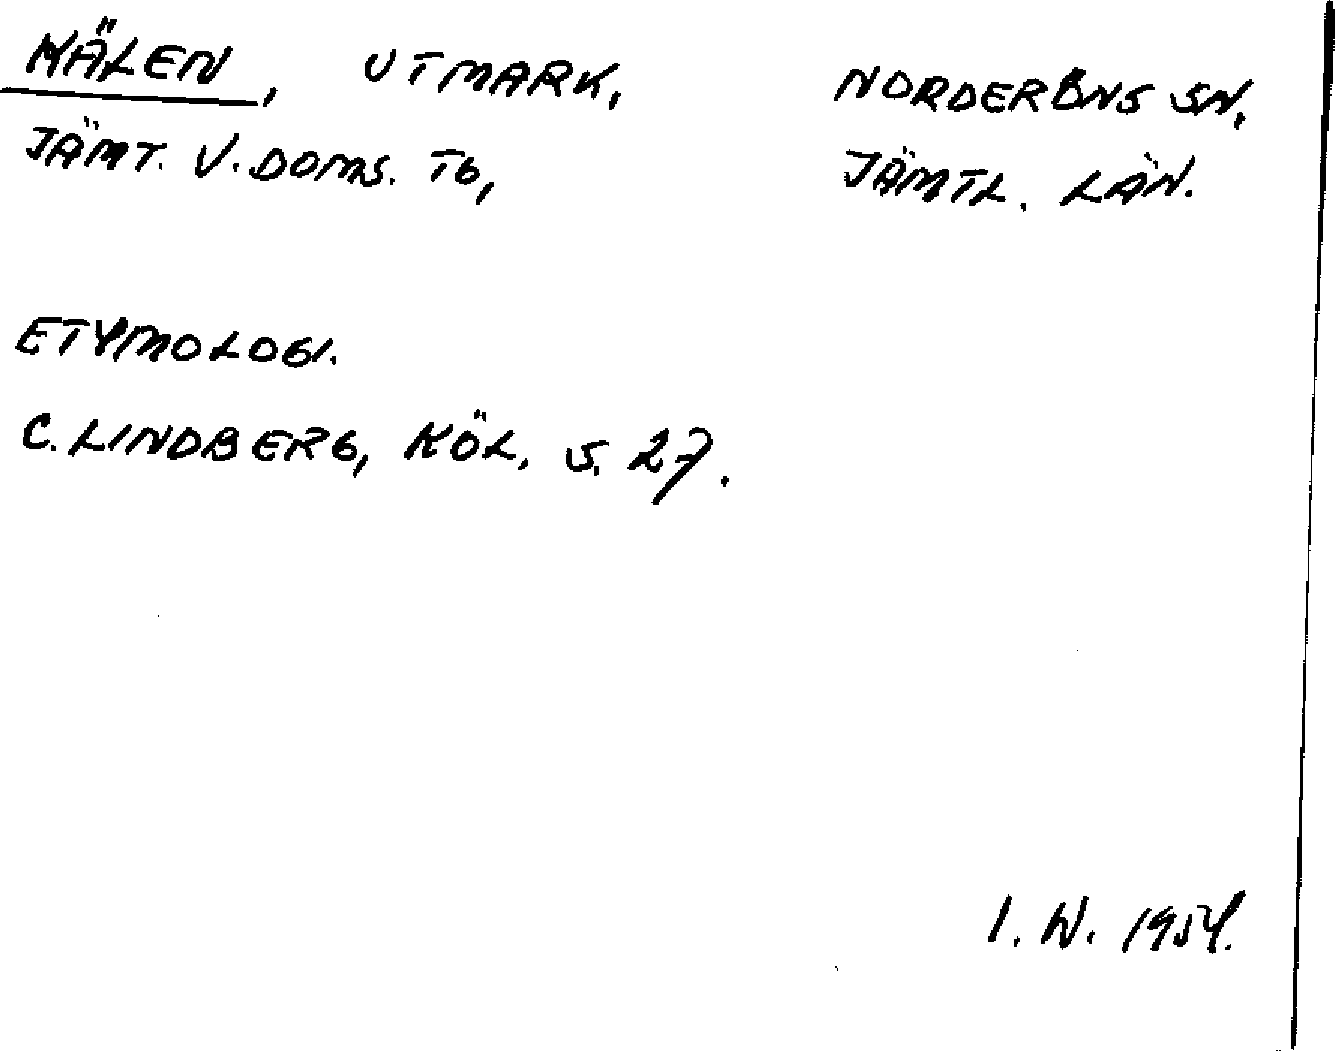 KÄLEN, UTMARK, NORDERÖNS SN,
JÄMT. V. DOMS. TG, JÄMTL. LÄN.
ETYMOLOGI.
C. LINDBERG, KÖL, S. 27.
I. W. 1954.